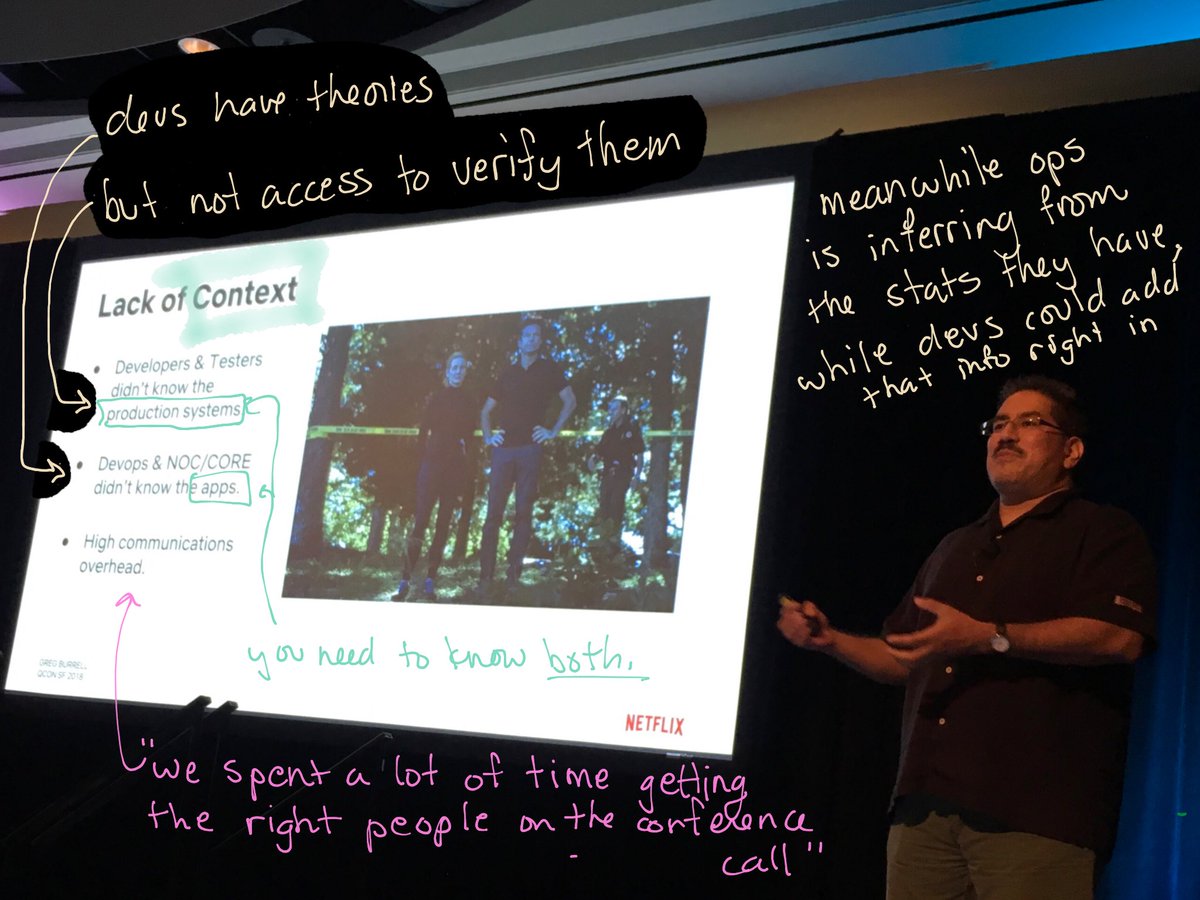 devs have theories
but not access to verify them
meanwhile ops
is inferring from
the stats they have,
while devs could add
that info right in
Lack of Context
• Developers & Testers
didn't know the
production systems
• Devops & NOC/CORE
didn't know the apps.
• High communications
overhead.
you need to know both.
GREG BURRELL
QCON SF 2018
NETFLIX
"we spent a lot of time getting
the right people on the conference
call"